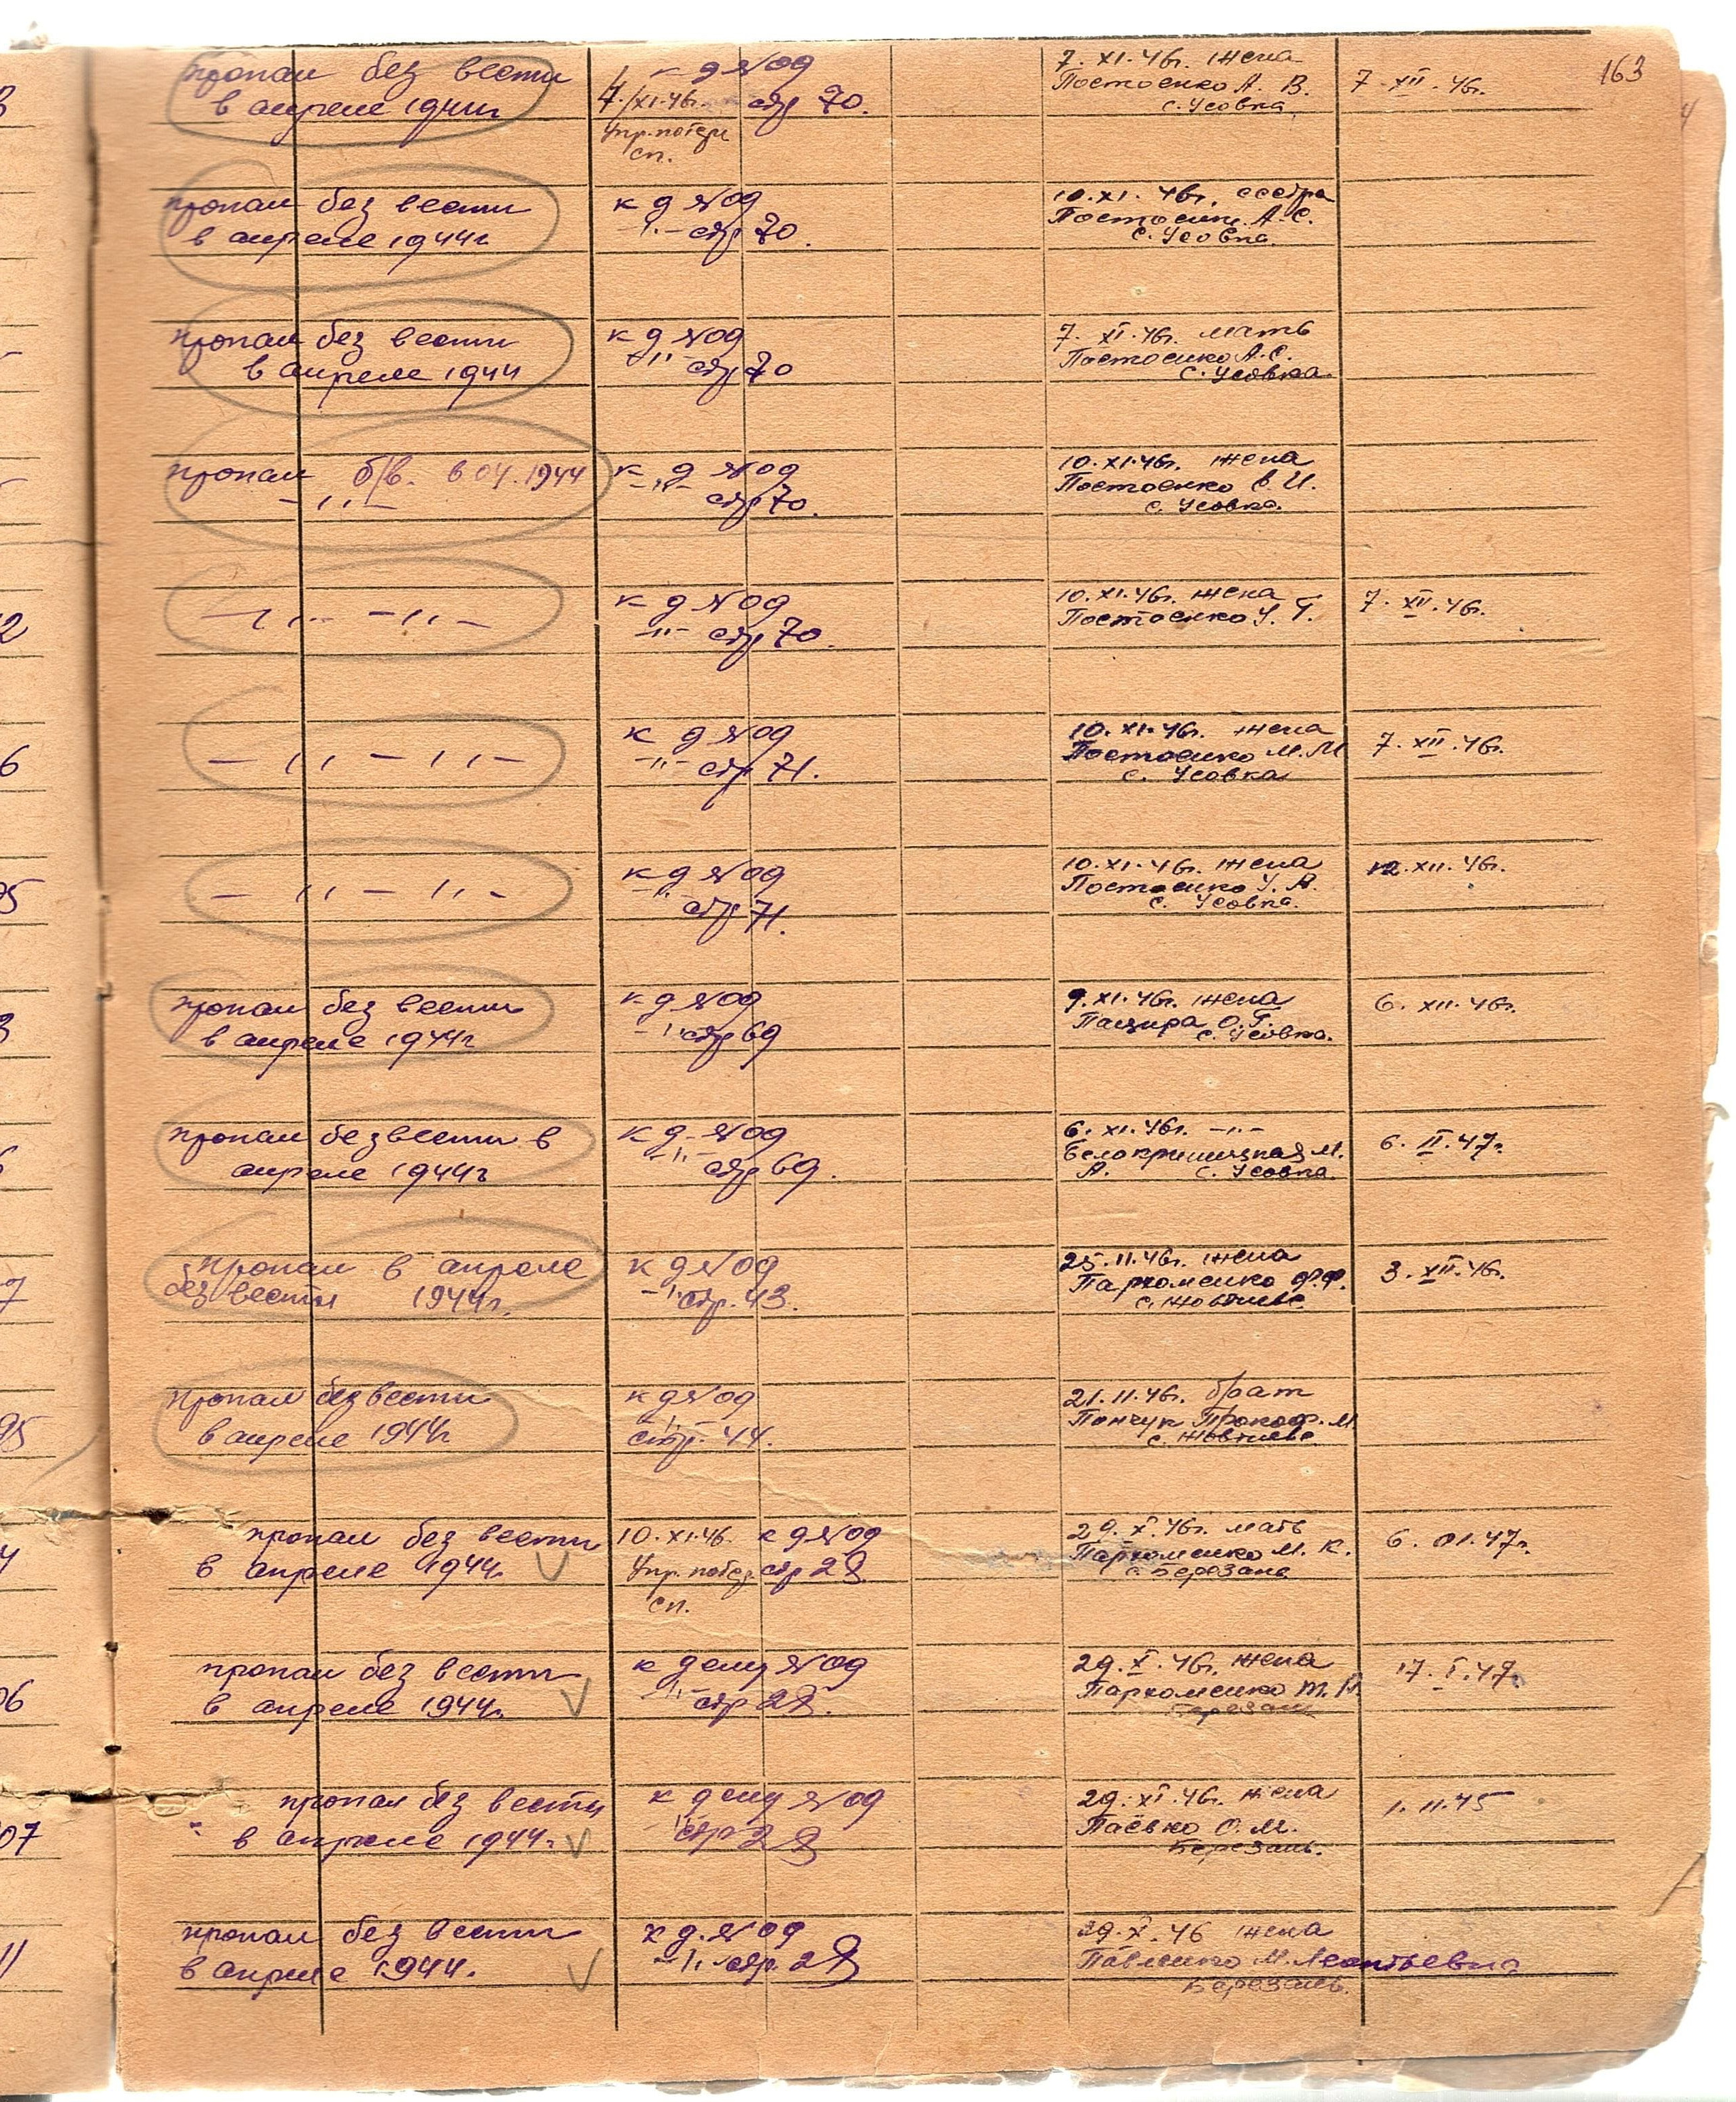 163
пропал без вести
в апреле 1944г
к д №09
7/XI.46г. стр 70.
Упр. потерь
сп.
7.XI.46г. жена
Постоенко А. В.
с. Усовка
7.XII.46г.
пропал без вести
в апреле 1944г
к д №09
-"- стр 70.
10.XI.46г. сестра
А.С.
с. Усовка.
пропал без вести
в апреле 1944
к д №09
-"- стр 70
7.XI.46г. мать
Постоенко А.С.
с. Усовка.
пропал б/в. в 04.1944
-"-
к д №09
-"- стр 70.
10.XI.46г. жена
Постоенко В. И.
с. Усовка.
-"- -"-
к д №09
-"- стр 70.
10.XI.46г. жена
Постоенко У. Г.
7.XII.46г.
-"- -"-
к д №09
-"- стр 71.
10.XI.46г. жена
Постоенко М.М
с. Усовка
7.XII.46г.
-"- -"-
к д №09
-"- стр 71.
10.XI.46г. жена
Постоенко У. А.
с. Усовка.
12.XII.46г.
пропал без вести
в апреле 1944г
к д №09
-"- стр 69
9.XI.46г. жена
Пацира О.Г.
с. Усовка.
6.XII.46г.
пропал без вести в
апреле 1944г
к д №09
-"- стр 69.
6.XI.46г. -"-
Белокриницкая М.
А. с. Усовка.
6.II.47г.
пропал в апреле
без вести 1944г.
к д №09
-"- стр. 43.
25.11.46г. жена
Пархоменко Ф.Ф.
с. Жовтневе
3.XII.46г.
пропал без вести
в апреле 1944г
к д №09
-"-
стр. 44.
21.11.46г. брат
Пончук Прокоф. М.
с. Жовтневе
пропал без вести
в апреле 1944г.
10.XI.46. к д №09
Упр. потерь стр 28
сп.
29.X.46г. мать
Пархоменко М. К.
с. Березань
6.01.47г.
пропал без вести
в апреле 1944г.
к делу №09
-"- стр 28.
29.X.46г. жена
Пархоменко М. П.
Березань
17.I.47.
пропал без вести
в апреле 1944г.
к делу №09
-"- стр 28
29.XI.46г. жена
Паёвко О. М.
Березань.
1.11.45
пропал без вести
в апреле 1944.
к д. №09
-"- стр. 28
29.X.46 жена
Павленко М. Леонтьевна
Березань.